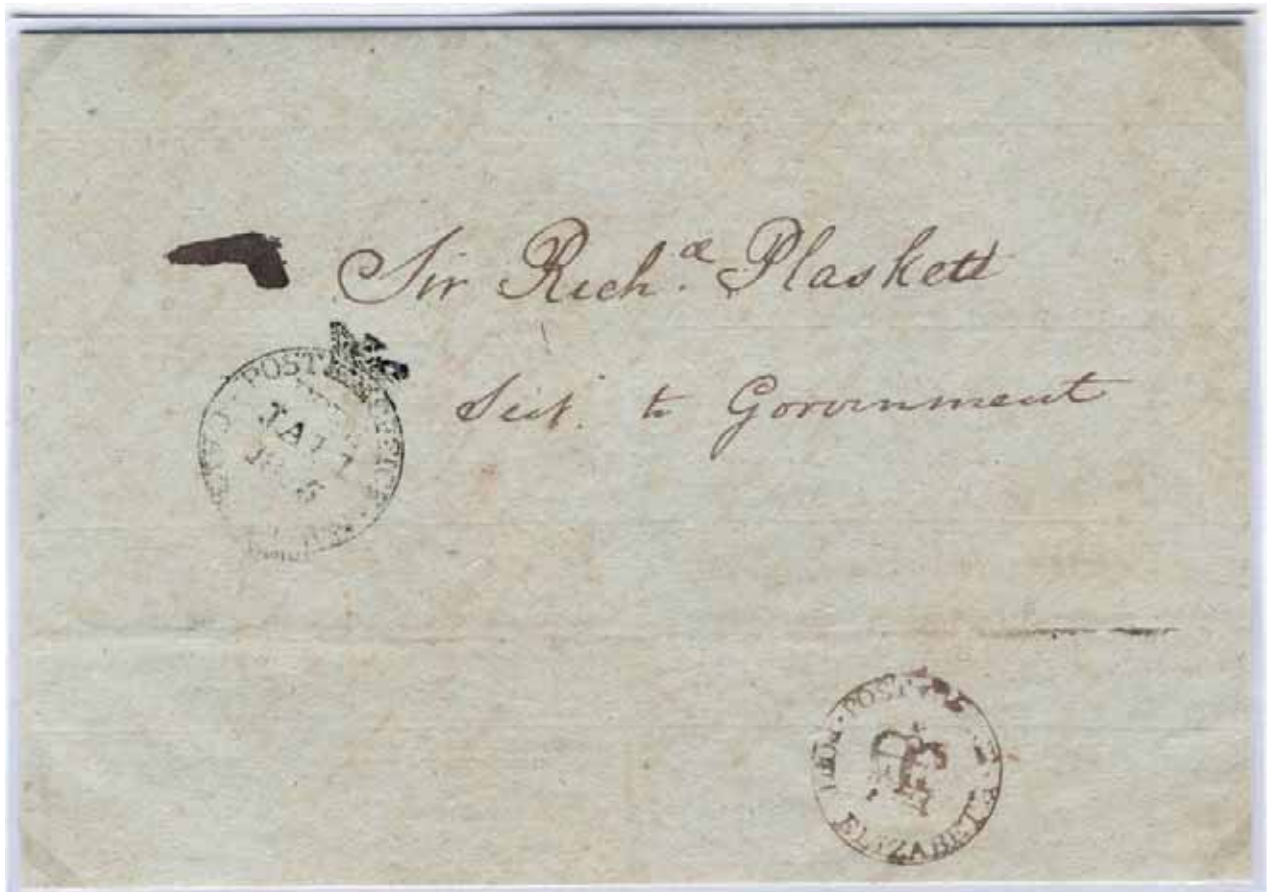 Sir Rich.d Plaskett
Sec.t to Government
POST
JA
PORT
POST
ELIZABET